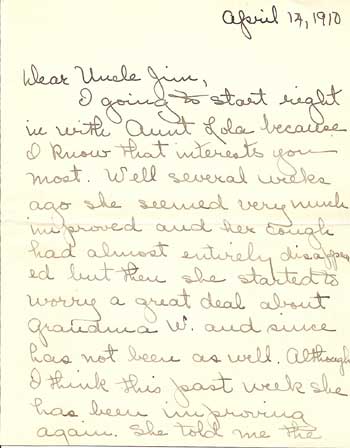 April 13, 1910
Dear Uncle Jim,
I going to start right
in with Aunt Lola because
I know that interests you
most. Well several weeks
ago she seemed very much
improved and her cough
had almost entirely disappear
ed but then she started to
worry a great deal about
Grandma W. and since
has not been as well. Although
I think this past week she
has been improving
again. She told me the